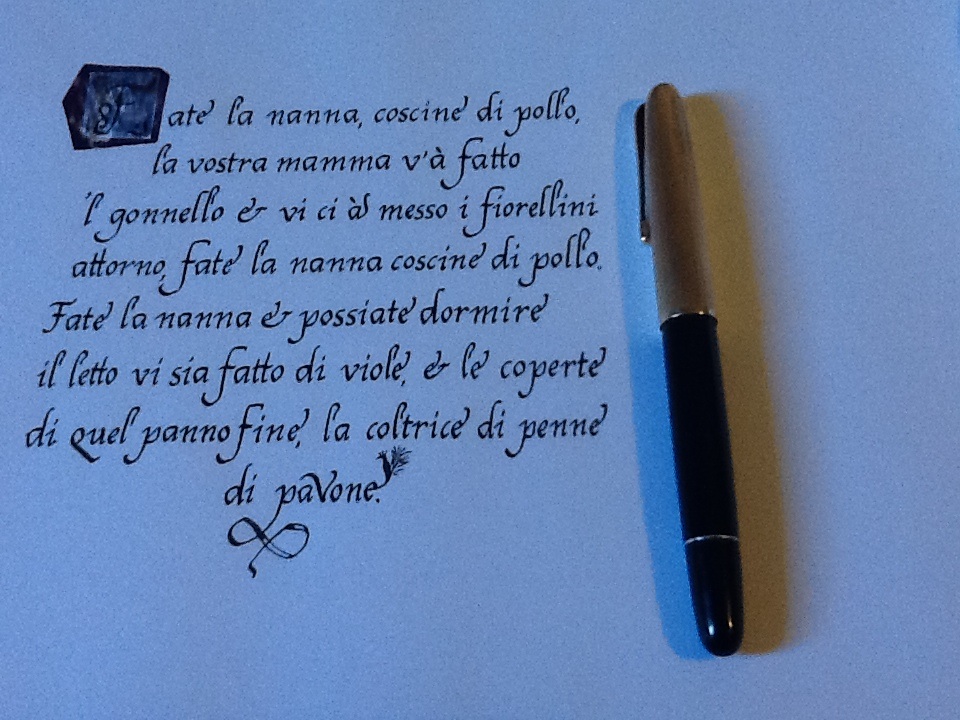 Fate la nanna, coscine di pollo,
la vostra mamma v'à fatto
'l gonnello & vi ci à messo i fiorellini
attorno, fate la nanna coscine di pollo.
Fate la nanna & possiate dormire
il letto vi sia fatto di viole, & le coperte
di quel panno fine, la coltrice di penne
di pavone.